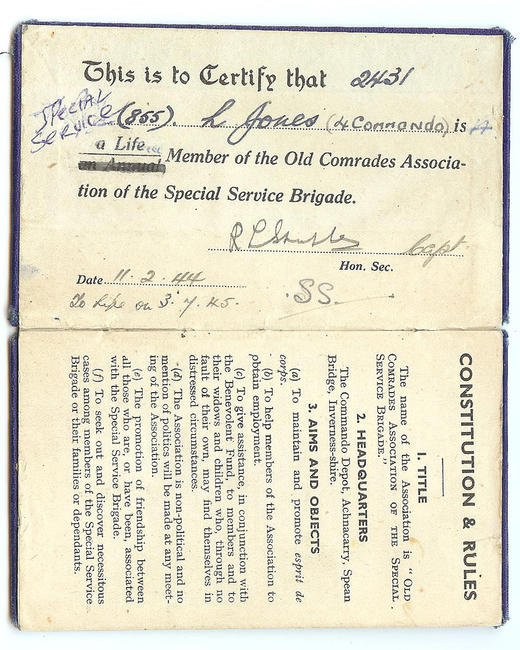 This is to Certify that 2431
SPECIAL
SERVICE
(855). L Jones (4 COMMANDO) is
a Life
an Annual Member of the Old Comrades Associa-
tion of the Special Service Brigade.
Capt.
Hon. Sec.
Date 11.2.44
To Life on 3.7.45.
SS.
CONSTITUTION & RULES
1. TITLE
The name of the Association is "OLD
COMRADES ASSOCIATION OF THE SPECIAL
SERVICE BRIGADE."
2. HEADQUARTERS
The Commando Depot, Achnacarry, Spean
Bridge, Inverness-shire.
3. AIMS AND OBJECTS
(a) To maintain and promote esprit de
corps.
(b) To help members of the Association to
obtain employment.
(c) To give assistance, in conjunction with
the Benevolent Fund, to members and to
their widows and children who, through no
fault of their own, may find themselves in
distressed circumstances.
(d) The Association is non-political and no
mention of politics will be made at any meet-
ing of the Association.
(e) The promotion of friendship between
all those who are, or have been, associated
with the Special Service Brigade.
(f) To seek out and discover necessitous
cases among members of the Special Service
Brigade or their families or dependants.